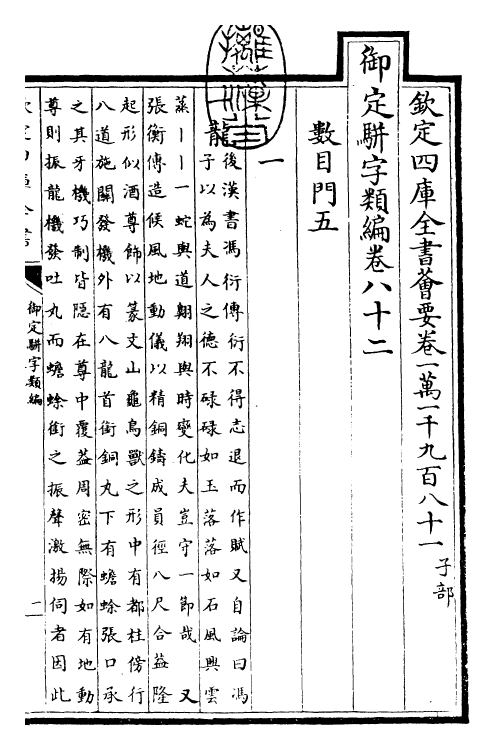 欽定四庫全書薈要卷一萬一千九百八十一 子部
御定駢字類編卷八十二
數目門五
一
一龍
後漢書馮衍傳衍不得志退而作賦又自論曰馮
子以為夫人之德不碌碌如玉落落如石風興雲
蒸丨丨一蛇與道翺翔與時變化夫豈守一節哉 又
張衡傳造候風地動儀以精銅鑄成員徑八尺合蓋隆
起形似酒尊飾以篆文山龜鳥獸之形中有都柱傍行
八道施關發機外有八龍首銜銅丸下有蟾蜍張口承
之其牙機巧制皆隱在尊中覆葢周密無際如有地動
尊則振龍機發吐丸而蟾蜍銜之振聲激揚伺者因此
欽定四庫全書
御定駢字類編